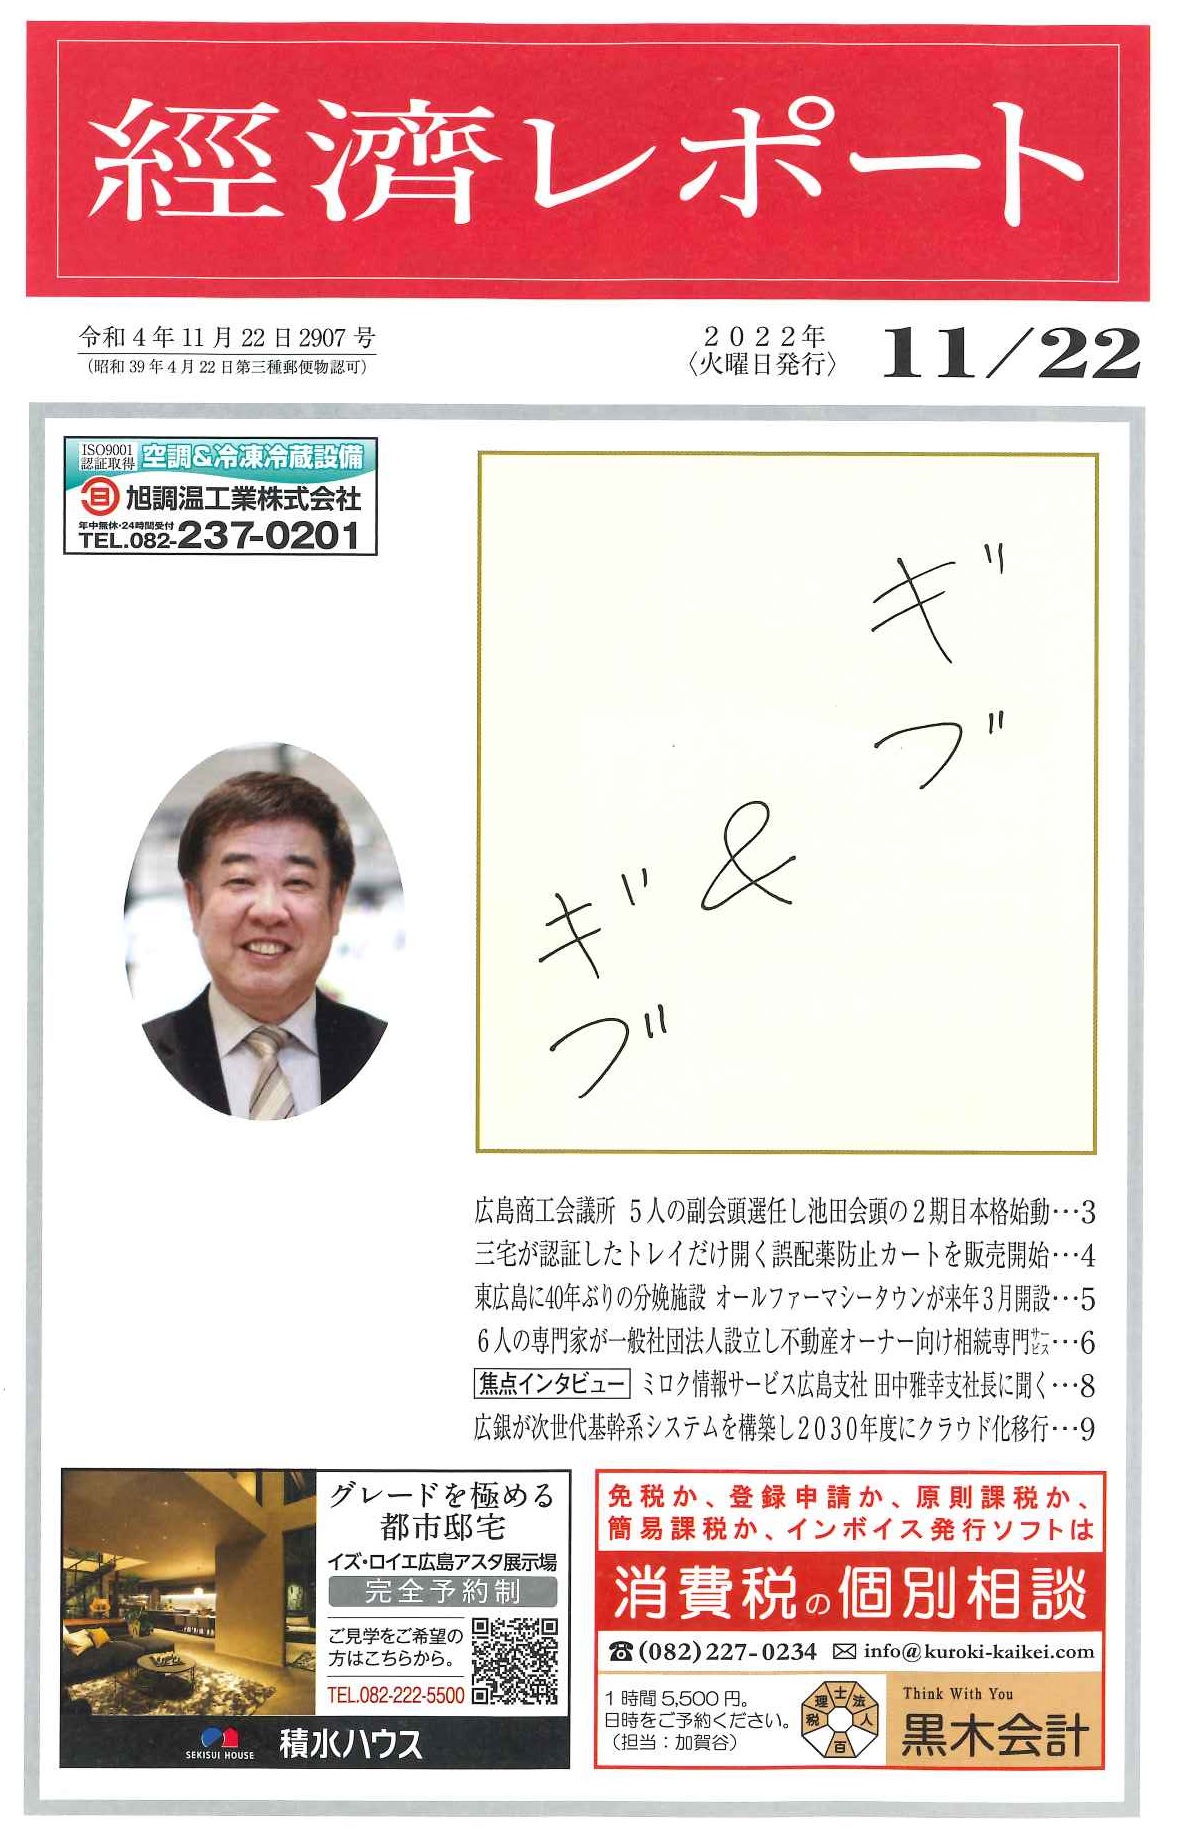 經濟レポート
令和4年11月22日2907号
（昭和39年4月22日第三種郵便物認可）
2022年
〈火曜日発行〉
11/22
ISO9001
認証取得
空調&冷凍冷蔵設備
旭調温工業株式会社
年中無休・24時間受付
TEL.082-237-0201
ギブ
&
ギブ
広島商工会議所 5人の副会頭選任し池田会頭の2期目本格始動…3
三宅が認証したトレイだけ開く誤配薬防止カートを販売開始…4
東広島に40年ぶりの分娩施設 オールファーマシータウンが来年3月開設…5
6人の専門家が一般社団法人設立し不動産オーナー向け相続専門サービス…6
焦点インタビュー ミロク情報サービス広島支社 田中雅幸支社長に聞く…8
広銀が次世代基幹系システムを構築し2030年度にクラウド化移行…9
グレードを極める
都市邸宅
イズ・ロイエ広島アスタ展示場
完全予約制
ご見学をご希望の
方はこちらから。
TEL.082-222-5500
SEKISUI HOUSE 積水ハウス
免税か、登録申請か、原則課税か、
簡易課税か、インボイス発行ソフトは
消費税の個別相談
☎(082)227-0234 ✉info@kuroki-kaikei.com
1時間5,500円。
日時をご予約ください。
（担当：加賀谷）
税理士法人百
Think With You
黒木会計